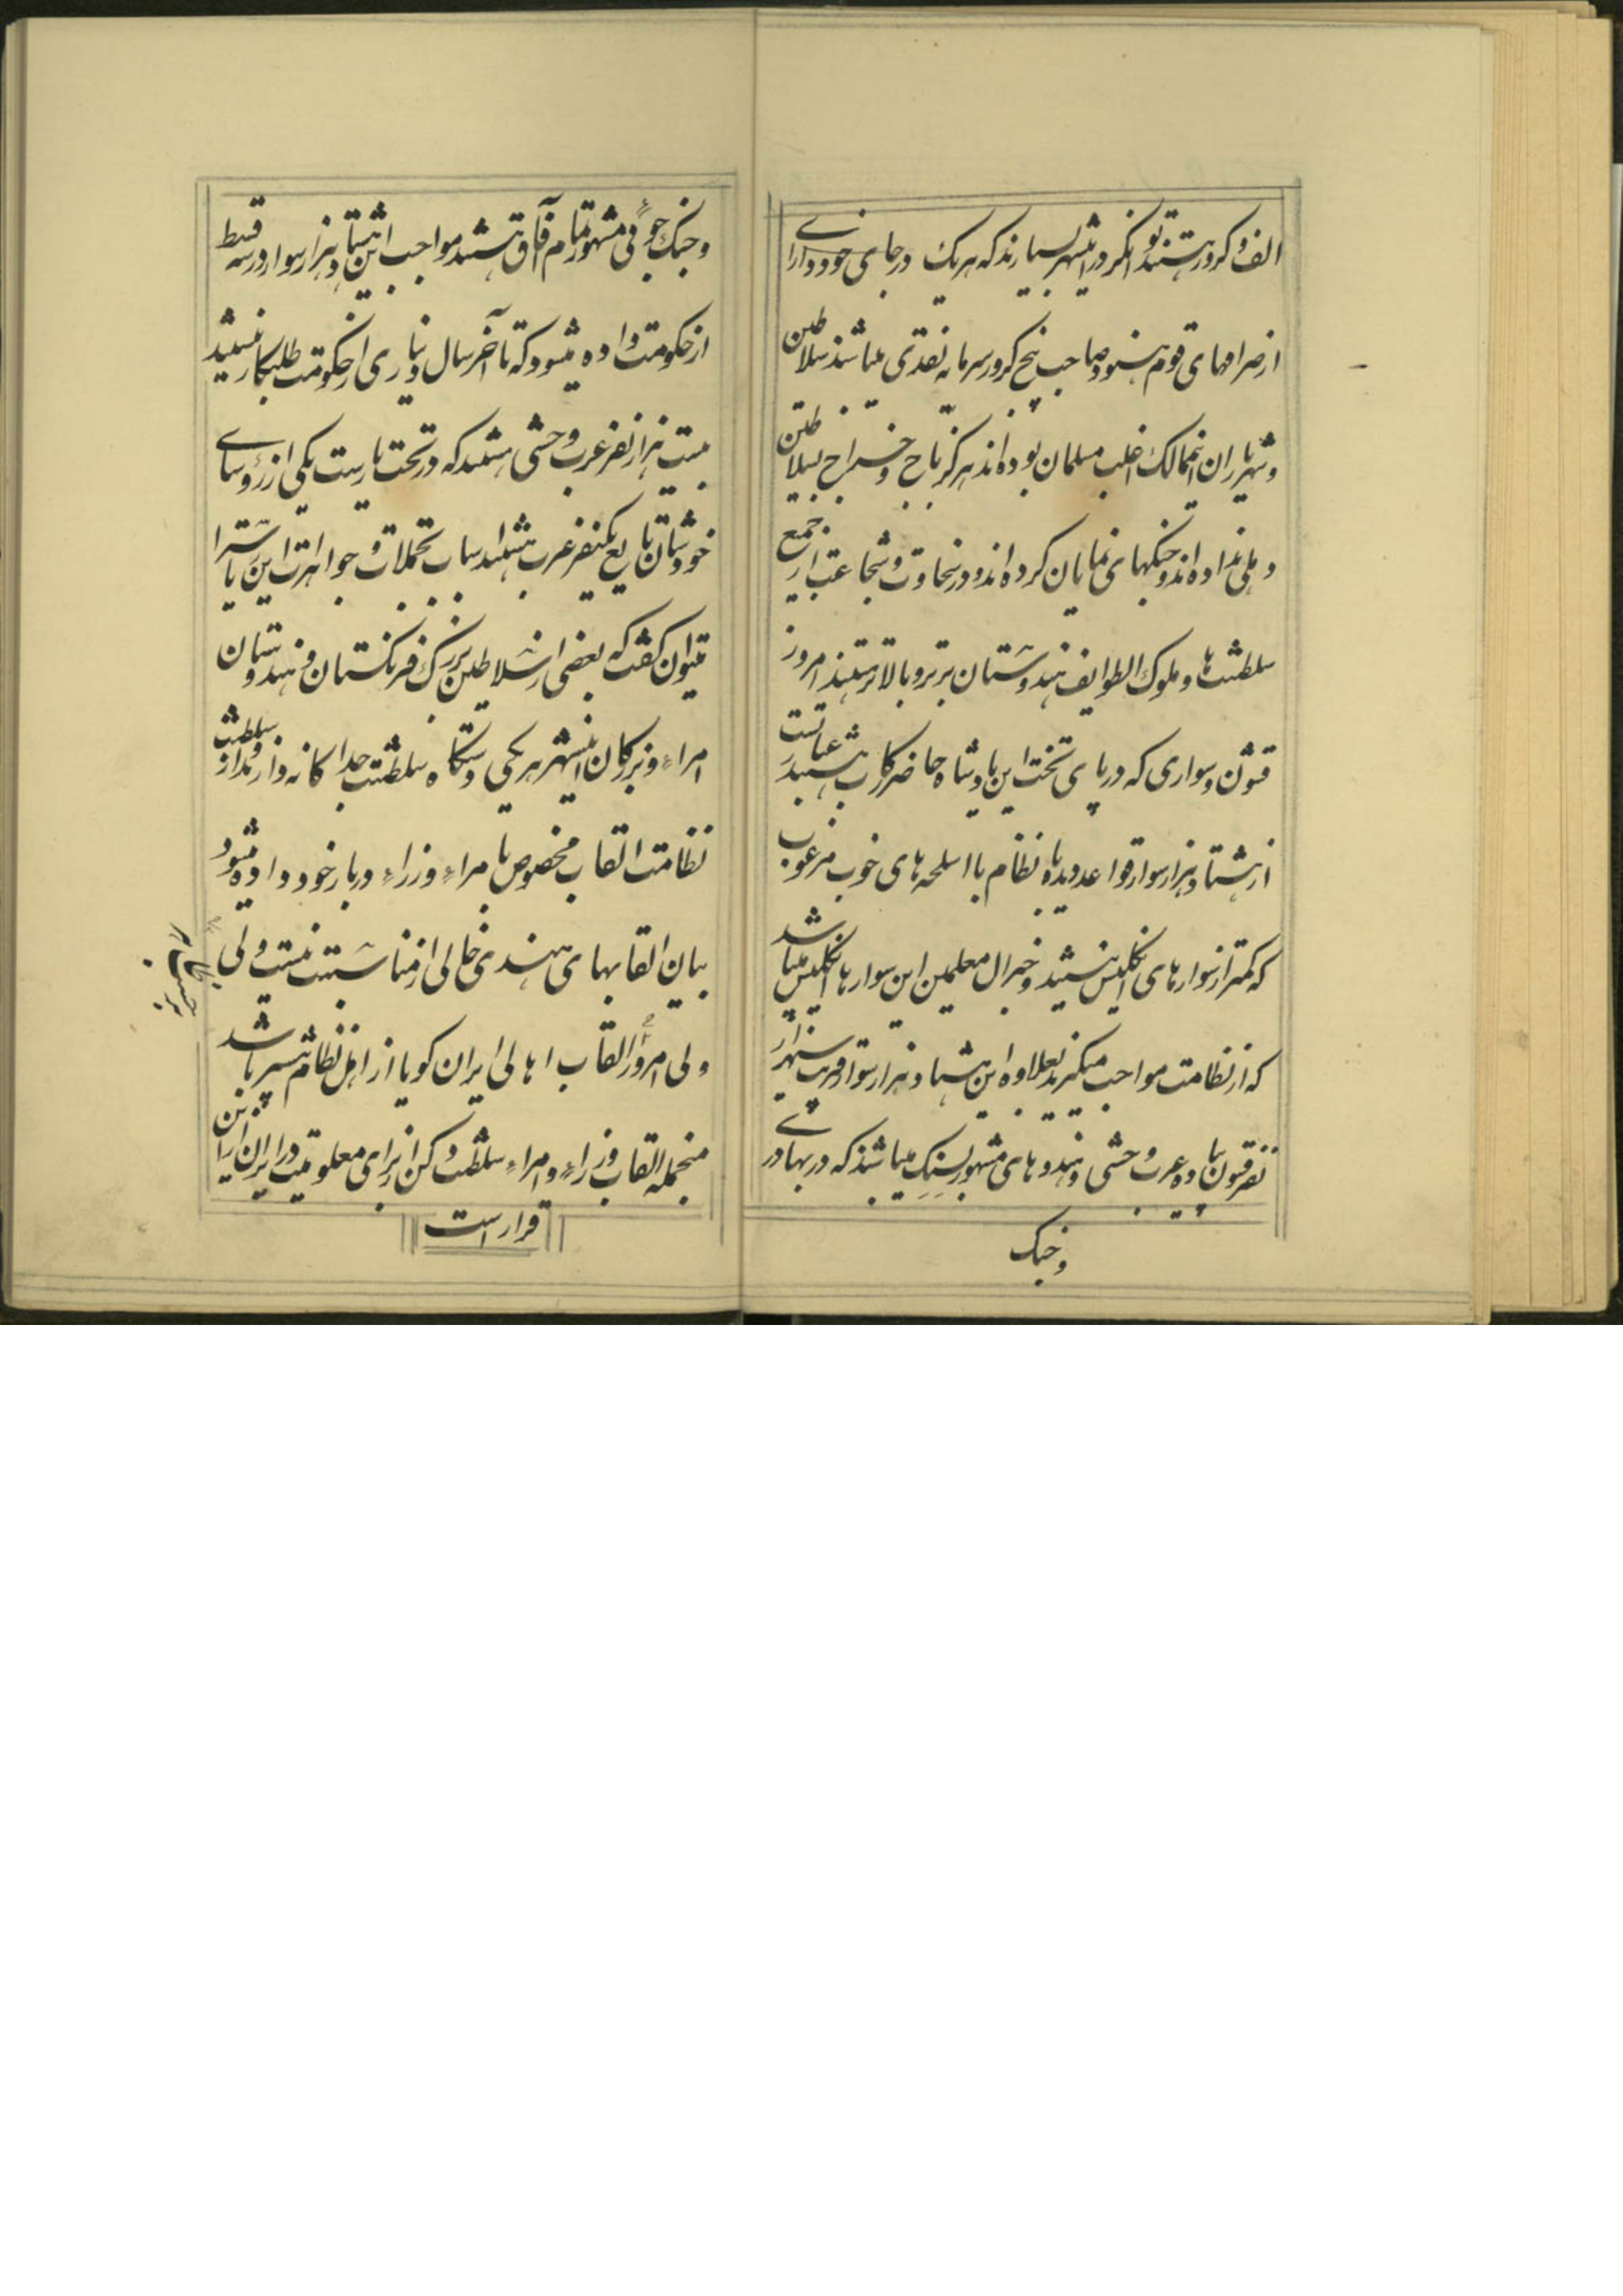 الف و کرور هستند توانگر در اینشهر بسیارند که هریک در جای خود دارای
از صرافهای قوم هنود صاحب پنج کرور سرمایه نقدی میباشند سلاطین
و شهریاران اینممالک اغلب مسلمان بوده‌اند هرگز باج و خراج بسلاطین
دهلی نداده‌اند و جنگهای نمایان کرده‌اند و در سخاوت و شجاعت از جمیع
سلطنت‌ها و ملوک الطوایف هندوستان برتر و بالاتر هستند امروز
قشون و سواری که در پای تخت این پادشاه حاضر رکاب هستند عبارتست
از هشتاد هزار سوار قواعد دیده با نظام با اسلحه‌های خوب مرغوب
که کمتر از سوارهای انگلیس نیستند و جنرال معلمین این سوارها انگلیس میباشد
که از نظامت مواجب میگیرند بعلاوه این هشتاد هزار سوار قریب سی هزار
نفر قشون پیاده عرب وحشی و هندوهای مشهور بسنک میباشند که در بهادری
و جنک
و جنک جوئی مشهور تمام آفاق هستند مواجب این هشتاد هزار سوار در سه قسط
از حکومت داده میشود که تا آخر سال دیناری از حکومت طلبکار نیستند
بیست هزار نفر عرب وحشی هستند که در تحت ریاست یکی از رؤسای
خودشان تابع یکنفر عرب هستند اسباب تجملات و جواهرات این ریاست را
میتوان گفت که بعضی از سلاطین بزرک فرنگستان و هندوستان
امراء و بزرکان اینشهر هر یکی دستگاه سلطنت جداگانه دارند از سلطنت و
نظامت القاب مخصوص بامراء و وزراء دربار خود داده میشود
بیان القابهای هندی خالی از مناسبت نیست ولی
ولی امروز القاب اهالی ایران گویا از اهل نظام شهیر باشد
منجمله القاب وزراء و امراء سلطنت دکن از برای معلومیت در ایران از این
قرار است